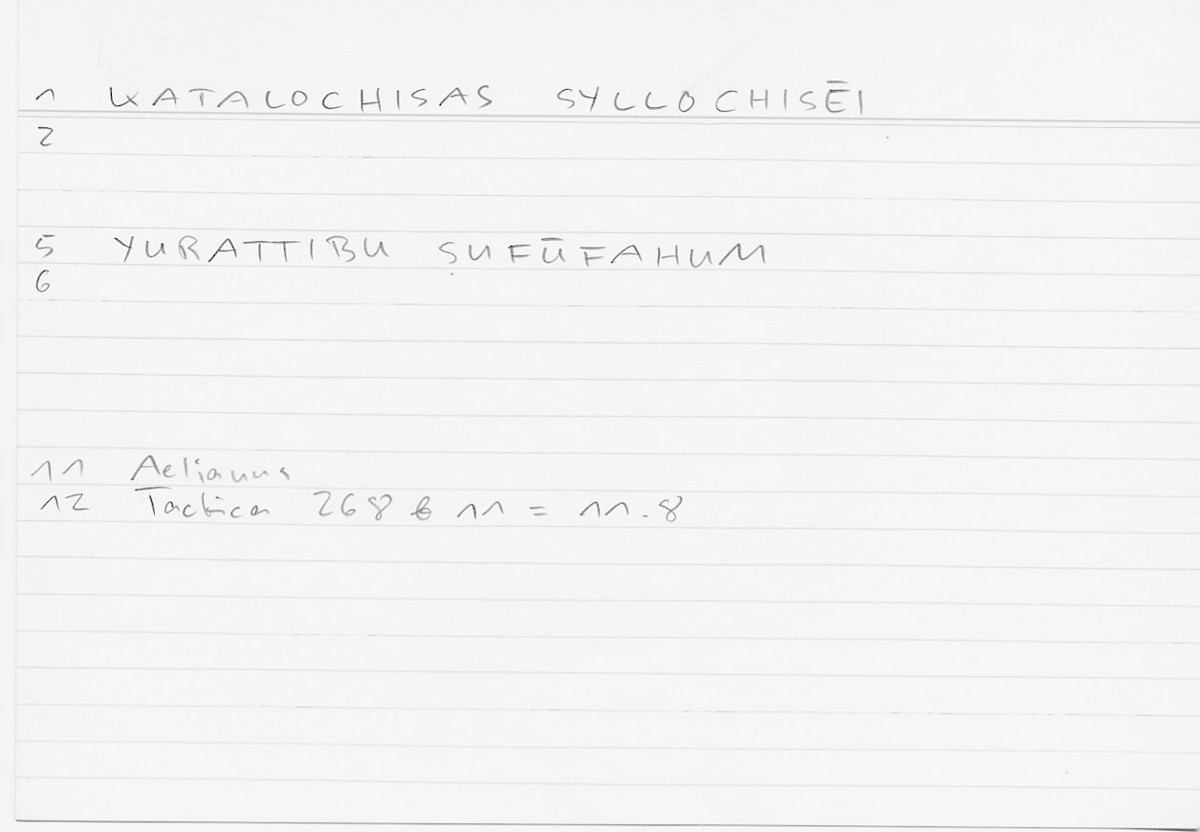 1 KATALOCHISAS SYLLOCHISĒI
2
5 YURATTIBU ṢUFŪFAHUM
6
11 Aelianus
12 Tactica 268 b 11 = 11.8